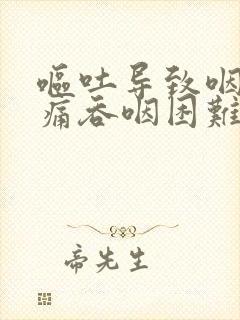 嘔吐导致咽
痛吞咽困難
帝先生